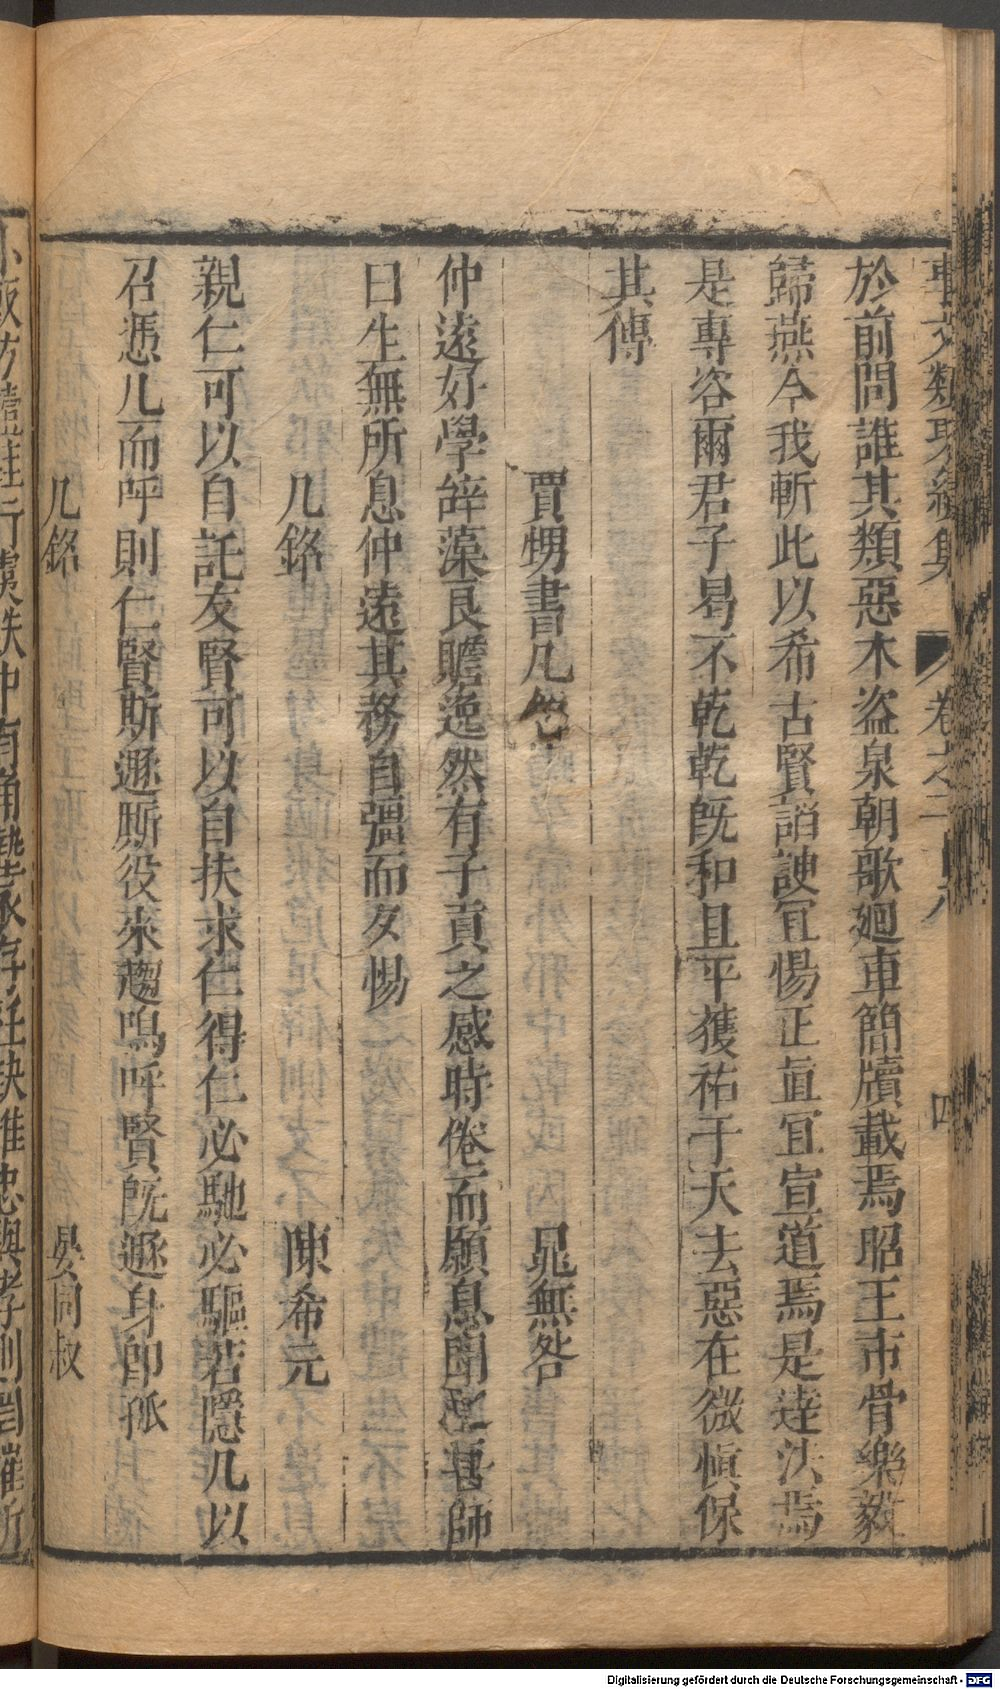 事文類聚續集　卷之二十八　四
於前問誰其類惡木盜泉朝歌廻車簡牘載焉昭王市骨樂毅
歸燕今我斬此以希古賢諂諛宜惕正直宜宣道焉是達法焉
是專咨爾君子曷不乾乾旣和且平獲祐于天去惡在微愼保
其傳
賈甥書几銘　晁無咎
仲遠好學辭藻良贍逸然有子貢之感時倦而願息聞聖善師
曰生無所息仲遠其務自彊而夕惕
几銘　陳希元
親仁可以自託友賢可以自扶求仁得仁必馳必驅若隱几以
召憑几而呼則仁賢斯遜厮役來趨嗚呼賢旣遜身卽孤
几銘　晏同叔
Digitalisierung gefördert durch die Deutsche Forschungsgemeinschaft - DFG